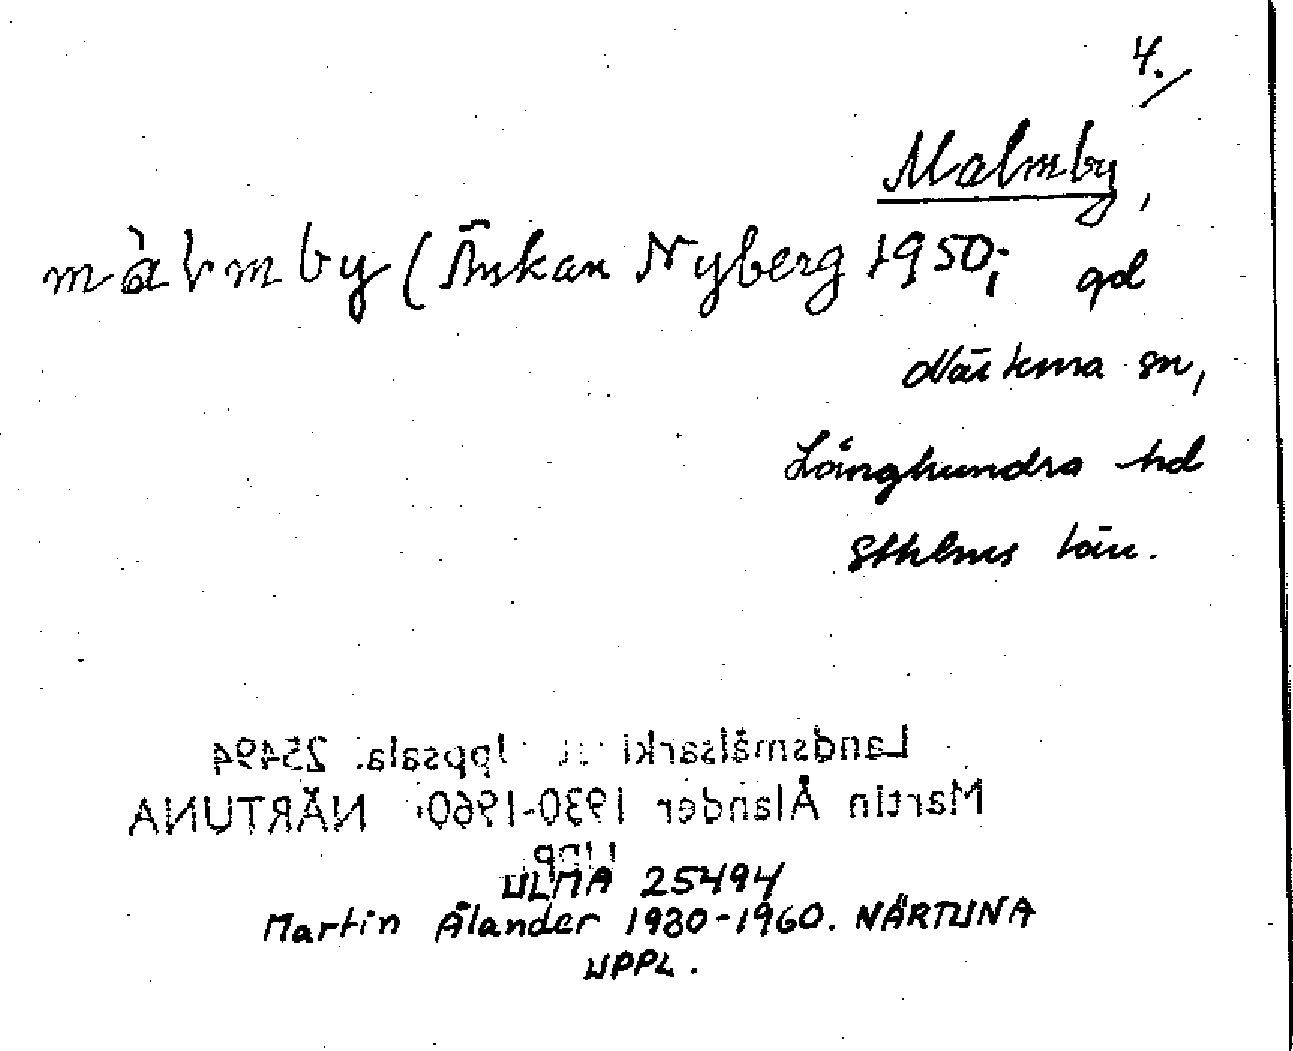 4.
Malmby,
màlmby (Änkan Nyberg 1950; gd
Närtuna sn,
Långhundra hd
Sthlms län.
Landsmålsarki Uppsala. 25494
Martin Ålander 1930-1960. NÄRTUNA
Uppl
ULMA 25494
Martin Ålander 1930-1960. NÄRTUNA
UPPL.